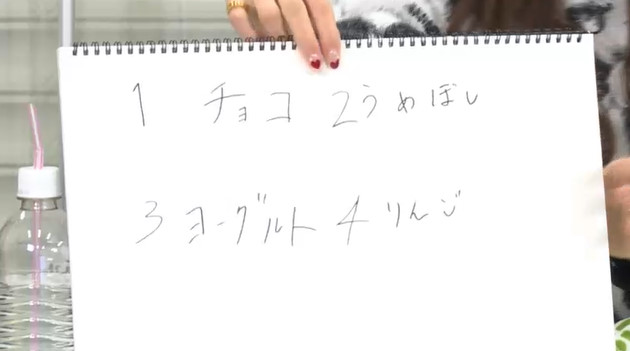 1 チョコ 2うめぼし
3 ヨーグルト 4 りんご